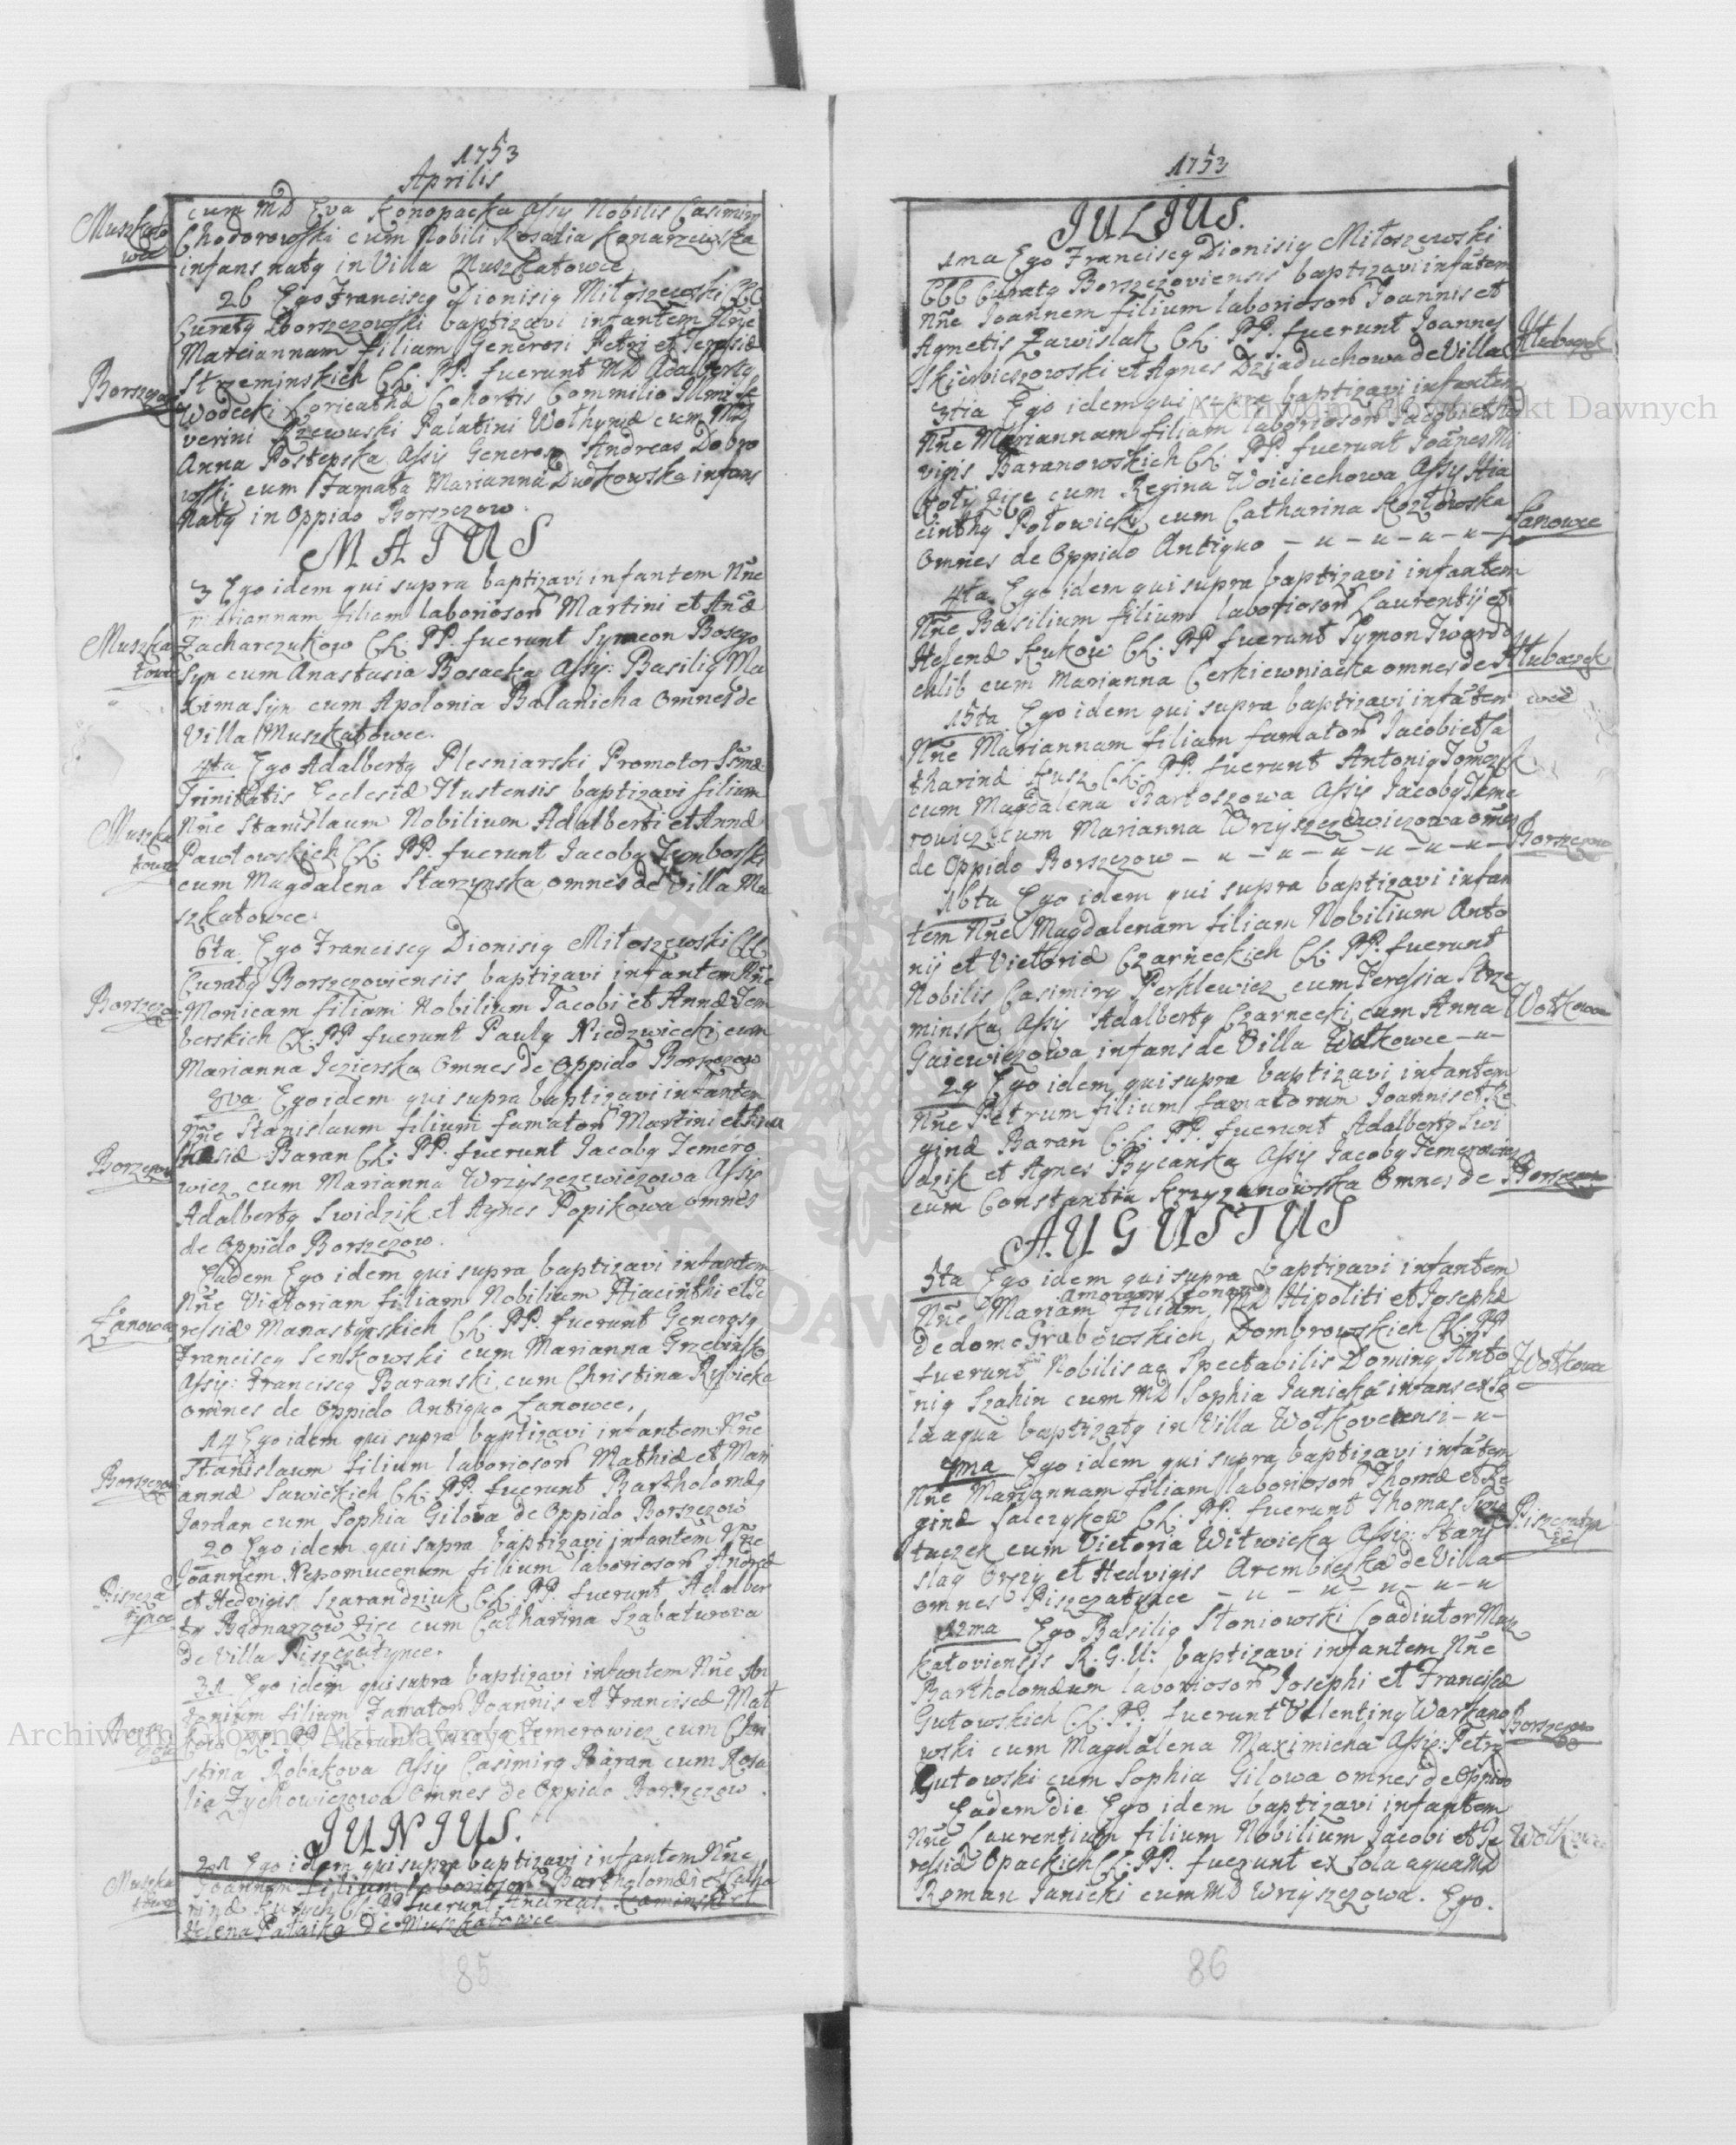 1753
Aprilis
cum MD Eva Konopacka Assis Nobilis Casimiry
Chodorowski cum Nobili Rosalia Konarzewska
infans naty in Villa Muszkatowce
Muszkato
wce
26 Ego Franciscy Dionisiy Miłoszewski CCC
Curaty Borszczowski baptizavi infantem Nñe
Mariannam filiam Generosi Petri et Teressiæ
Strzeminskich CL: PP. fuerunt MD Adalberty
Wodecki Loricathæ Cohortis Commilio
verini Rzewuski Palatini Wołhyniæ cum MD
Anna Postepska Assis Generosy Andreas Dobro
wski cum Famata Marianna Dudkowska infans
naty in Oppido Borszczow.
Borszczow
MAIUS
3 Ego idem qui supra baptizavi infantem Nñe
Mariannam filiam laboriosor Martini et Annæ
Zacharczukow CL: PP. fuerunt Symeon Bosego
Syn cum Anastasia Bosacka Assis: Basiliy Ma
ximasyn cum Apolonia Balanicha Omnes de
Villa Muszkatowce.
Muszka
towce
4ta Ego Adalberty Plesniarski Promotor Ssmæ
Trinitatis Ecclesiæ Tlustensis baptizavi filium
Nñe Stanislaum Nobilium Adalberti et Annæ
Pawłowskich CL: PP. fuerunt Jacoby Zemborski
cum Magdalena Starzynska omnes de Villa Mu
szkatowce.
Muszka
towce
6ta Ego Franciscy Dionisiy Miłoszewski CCC
Curaty Borszczoviensis baptizavi infantem Nñe
Monicam filiam Nobilium Jacobi et Annæ Zem
berskich CL: PP fuerunt Pauly Niedzwiecki cum
Marianna Jezierska Omnes de Oppido Borszczow
Borszczo:
8va Ego idem qui supra baptizavi infantem
Nñe Stanislaum filium famator Martini et
Baran CL: PP. fuerunt Jacoby Temero
wicz cum Marianna Wrzyszczewiczowa Assis
Adalberty Swidzik et Agnes Popikowa omnes
de Oppido Borszczow.
Borszczow
Eadem Ego idem qui supra baptizavi infantem
Nñe Victoriam filiam Nobilium Hiacinthi et Te
ressiæ Manastyrskich CL: PP. fuerunt Generosy
Franciscy Senkowski cum Marianna Grzebinska
Assis: Franciscy Baranski cum Christina Rybicka
omnes de Oppido Antiquo Łanowce.
Łanowce
14 Ego idem qui supra baptizavi infantem Nñe
Stanislaum filium laboriosor Mathiæ et Mari
annæ Sawickich CL: PP. fuerunt Bartholomæy
Jordan cum Sophia Gilowa de Oppido Borszczow
Borszczow
20 Ego idem qui supra baptizavi infantem Nñe
Joannem Nepomucenum filium laboriosor Andreæ
et Hedvigis Szarandziuk CL: PP. fuerunt Adalber
ty Bednarzow Zięc cum Catharina Szabaturowa
de Villa Piszczatynce.
Piszcza
tynce
31 Ego idem qui supra baptizavi infantem Nñe An
tonium filium Famator Joannis et Franciscæ Mat
CL: PP fuerunt Jacoby Temerowicz cum Chri
stina Robakowa Assis Casimiry Baran cum Rosa
lia Zychowiczowa Omnes de Oppido Borszczow.
JUNIUS.
21 Ego idem qui supra baptizavi infantem Nñe
Joannem filium laboriosor Bartholomæi et Catha
rinæ CL: PP fuerunt Andreas Kaminski et
Helena Pałaika de Muszkatowce
Muszka
towce
85
1753
JULIUS.
1ma Ego Franciscy Dionisiy Miłoszewski
CCC Curaty Borszczoviensis baptizavi infãtem
Nñe Joannem filium laboriosor Joannis et
Agnetis Zawislak CL: PP. fuerunt Joannes
Skierbiczowski et Agnes Dziaduchowa de Villa
Hłuboczek
3tia Ego idem qui supra baptizavi infantem
Nñe Mariannam filiam laboriosor Jacobi et Hed
vigis Baranowskich CL: PP. fuerunt Joãnes Mi
koły Zięc cum Regina Woiciechowa Assis Hia
cinthy Połowicki cum Catharina Kozłowska
Omnes de Oppido Antiquo – u – u – u – u –
Łanowce
4ta Ego idem qui supra baptizavi infantem
Nñe Basilium filium laboriosor Laurentij et
Helenæ Kukow CL: PP fuerunt Symon Iwardo
chlib cum Marianna Cerkiewniacka omnes de
Hłuboczek
wce
15ta Ego idem qui supra baptizavi infãtem
Nñe Mariannam filiam famator Jacobi et Ca
tharinæ Kusz CL: PP. fuerunt Antoniy Tomczyk
cum Magdalena Bartoszowa Assis Jacoby Teme
rowicz cum Marianna Wrzyszczewiczowa omñes
de Oppido Borszczow – u – u – u – u – u – u –
Borszczow
16ta Ego idem qui supra baptizavi infan
tem Nñe Magdalenam filiam Nobilium Anto
nij et Victoriæ Czarneckich CL: PP. fuerunt
Nobilis Casimiry Perklewicz cum Teressia Strze
minska Assis Adalberty Czarnecki cum Anna
Gaiewiczowa infans de Villa Wołkowce – u –
Wołkowce
29 Ego idem qui supra baptizavi infantem
Nñe Petrum filium famatorum Joannis et Re
ginæ Baran CL: PP. fuerunt Adalberty Swi
dzik et Agnes Bycanska Assis Jacoby Temerowicz
cum Constantia Krzyzanowska Omnes de
Borszczow
AUGUSTUS
5ta Ego idem qui supra baptizavi infantem
Nñe Mariam filiam MD Hipoliti et Josephæ
de domo Grabowskich, Dombrowskich CL: PP
fuerunt Nobilis aq Spectabilis Dominy Anto
niy Szahin cum MD Sophia Janicka infans ex so
la aqua baptizaty in Villa Wołkovecensi – u –
Wołkowce
7ma Ego idem qui supra baptizavi infãtem
Nñe Mariannam filiam laboriosor Thomæ et Re
ginæ Salczykow CL: PP. fuerunt Thomas
tuczek cum Victoria Witwicka Assis: Stani
slaq Orszy et Hedvigis Arembicka de Villa
omnes Piszczatynce – u – u – u – u – u
Piszczatyn
ce
12ma Ego Basiliy Słoniowski Coadiutor Musz
katoviensis R.G.U: baptizavi infantem Nñe
Bartholomæum laboriosor Josephi et Franciscæ
Gutowskich CL: PP. fuerunt Valentiny Warzano
wski cum Magdalena Maximicha Assis: Petry
Gutowski cum Sophia Gilowa omnes de Oppido
Borszczow
Eadem die Ego idem baptizavi infantem
Nñe Laurentium filium Nobilium Jacobi et Te
ressiæ Opackich CL: PP. fuerunt ex Sola aqua MD
Roman Janicki cum MD Wrzyszczowa. Ego.
Wołkowce
86
Archiwum Główne Akt Dawnych
Archiwum Główne Akt Dawnych